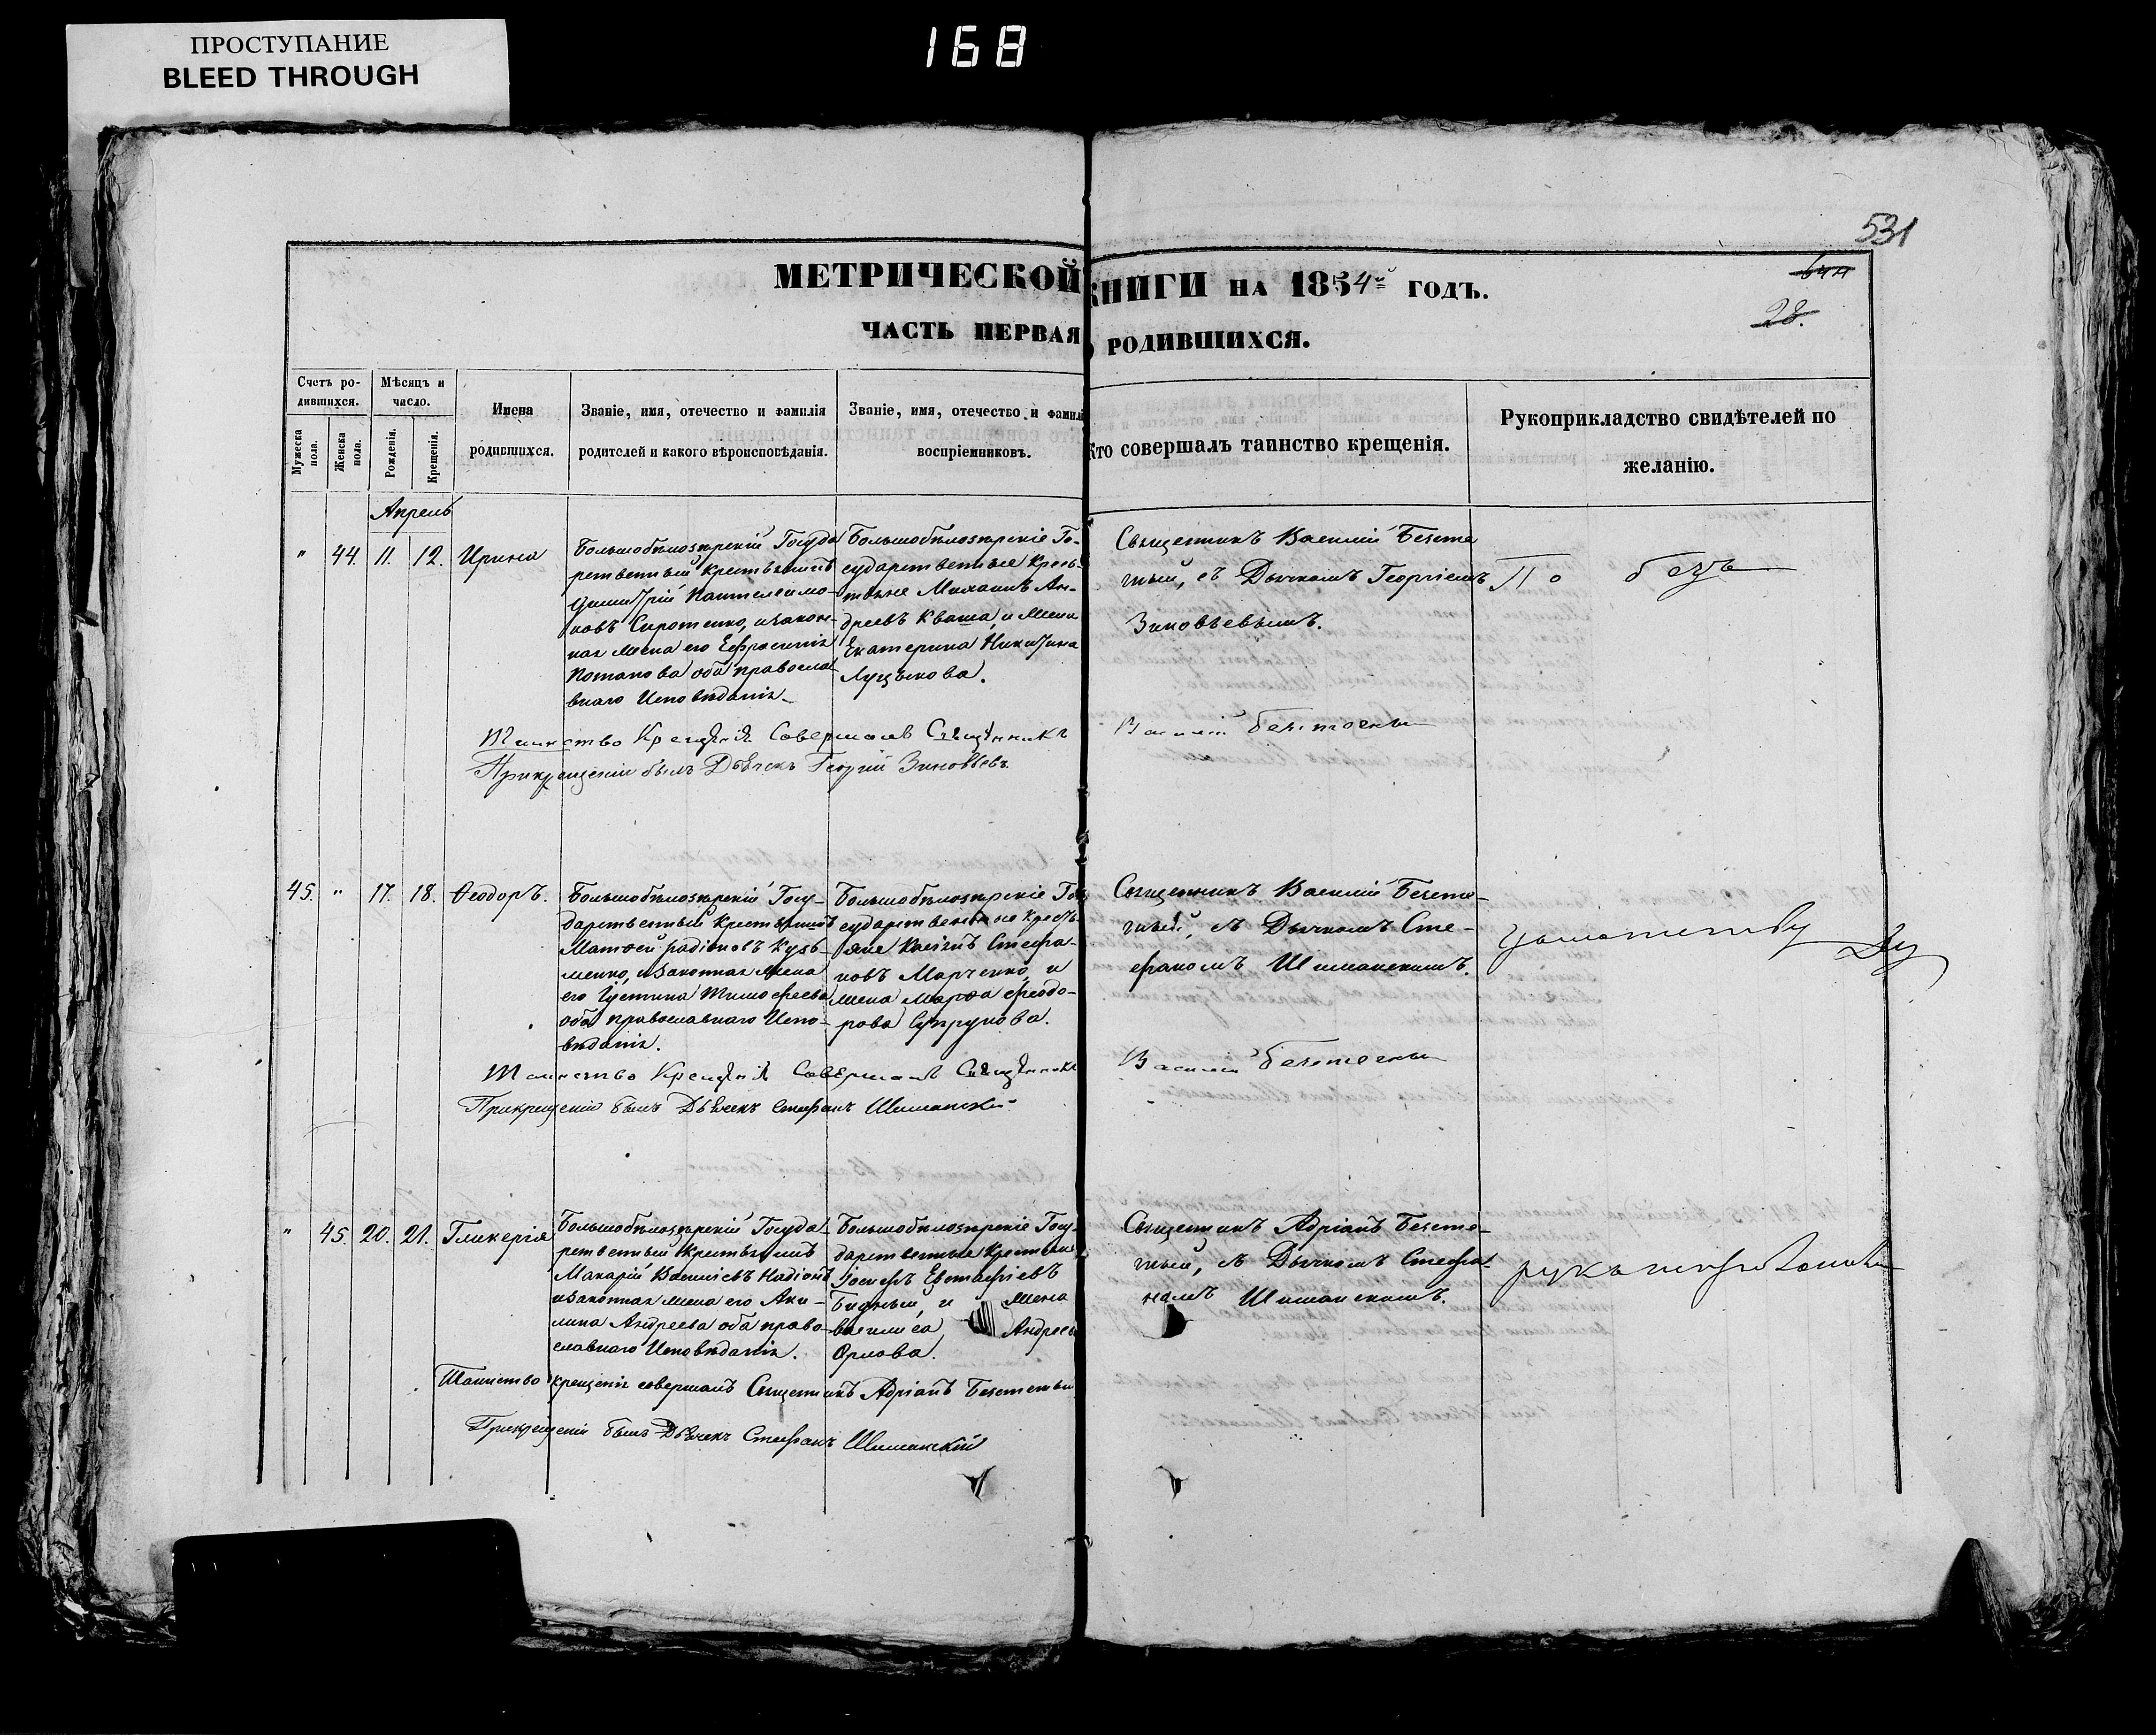 168
ПРОСТУПАНИЕ
BLEED THROUGH
531
МЕТРИЧЕСКОЙ КНИГИ НА 1854й ГОДЪ.
28.
ЧАСТЬ ПЕРВАЯ О РОДИВШИХСЯ.
Счетъ ро-
дившихся.
Мужеска пола.
Женска пола.
Мѣсяцъ и
число.
Рожденія.
Крещенія.
Имена
родившихся.
Званіе, имя, отечество и фамилія
родителей и какого вѣроисповѣданія.
Званіе, имя, отечество и фамилі
воспріемниковъ.
Кто совершалъ таинство крещенія.
Рукоприкладство свидѣтелей по
желанію.
Апрель
" 44. 11. 12. Ирина
Большобѣлозерскій Госуда
рственный крестьянинъ
Димитрій Пантелеимо-
новъ Сиротенко, и закон-
ная жена его Ефросинія
Потапова оба православ
внаго Исповѣданія
Большобѣлозерскіе Го-
сударственные Кресть-
яне Михаилъ Ан-
дреевъ Кваша, и жена
Екатерина Никитина
Луцькова.
Священникъ Василій Безсте
чный, съ Дьячкомъ Георгіемъ
Зиновьевымъ.
По безъ
Таинство Крещенія Совершалъ Священникъ Василій
При крещеніи былъ Дьячекъ Георгій Зиновьевъ
45. " 17. 18. Ѳеодоръ.
Большобѣлозерскій Госу-
дарственный крестьянинъ
Матѳей Радіоновъ Кузь-
менко, и законная жена
его Іустина Тимофеева
оба православнаго Испо-
вѣданія.
Большобѣлозерскіе Го
сударственные кресть
яне Касіянъ Стефа-
новъ Марченко, и
жена Марѳа Ѳеодо-
рова Супрунова.
Священникъ Василій Безсте-
чный, съ Дьячкомъ Сте-
фаномъ Шиманскимъ.
Таинство Крещенія Совершалъ Священникъ Василій
При крещеніи былъ Дьячекъ Стефанъ Шиманскій
" 45. 20. 21. Гликерія
Большобѣлозерскій Госуда-
рственный крестьянинъ
Макарій Василіевъ
и законная жена его Аки-
лина Андреева оба право-
славнаго Исповѣданія.
Большобѣлозерскіе Госу-
дарственные крестьяне
Іосифъ Евстафіевъ
и жена
Андреев
Орлова.
Священникъ Адріанъ Безсте-
чный, съ Дьячкомъ Стефа-
номъ Шиманскимъ.
Таинство крещенія совершалъ Священникъ Адріанъ
При крещеніи былъ Дьячекъ Стефанъ Шиманскій